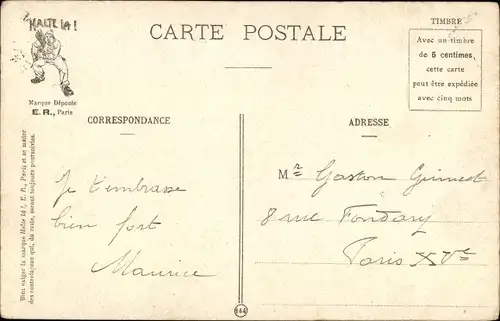 HALTE LA !
Marque Déposée
E. R., Paris
CARTE POSTALE
TIMBRE
Avec un timbre
de 5 centimes,
cette carte
peut être expédiée
avec cinq mots
CORRESPONDANCE
Je t'embrasse
bien fort
Maurice
ADRESSE
Mr Gaston
8 rue Fondary
Paris XVe
Bien exiger la marque Halte là !, E. R., Paris et se méfier
des contrefaçons qui, du reste, seront toujours poursuivies.
144